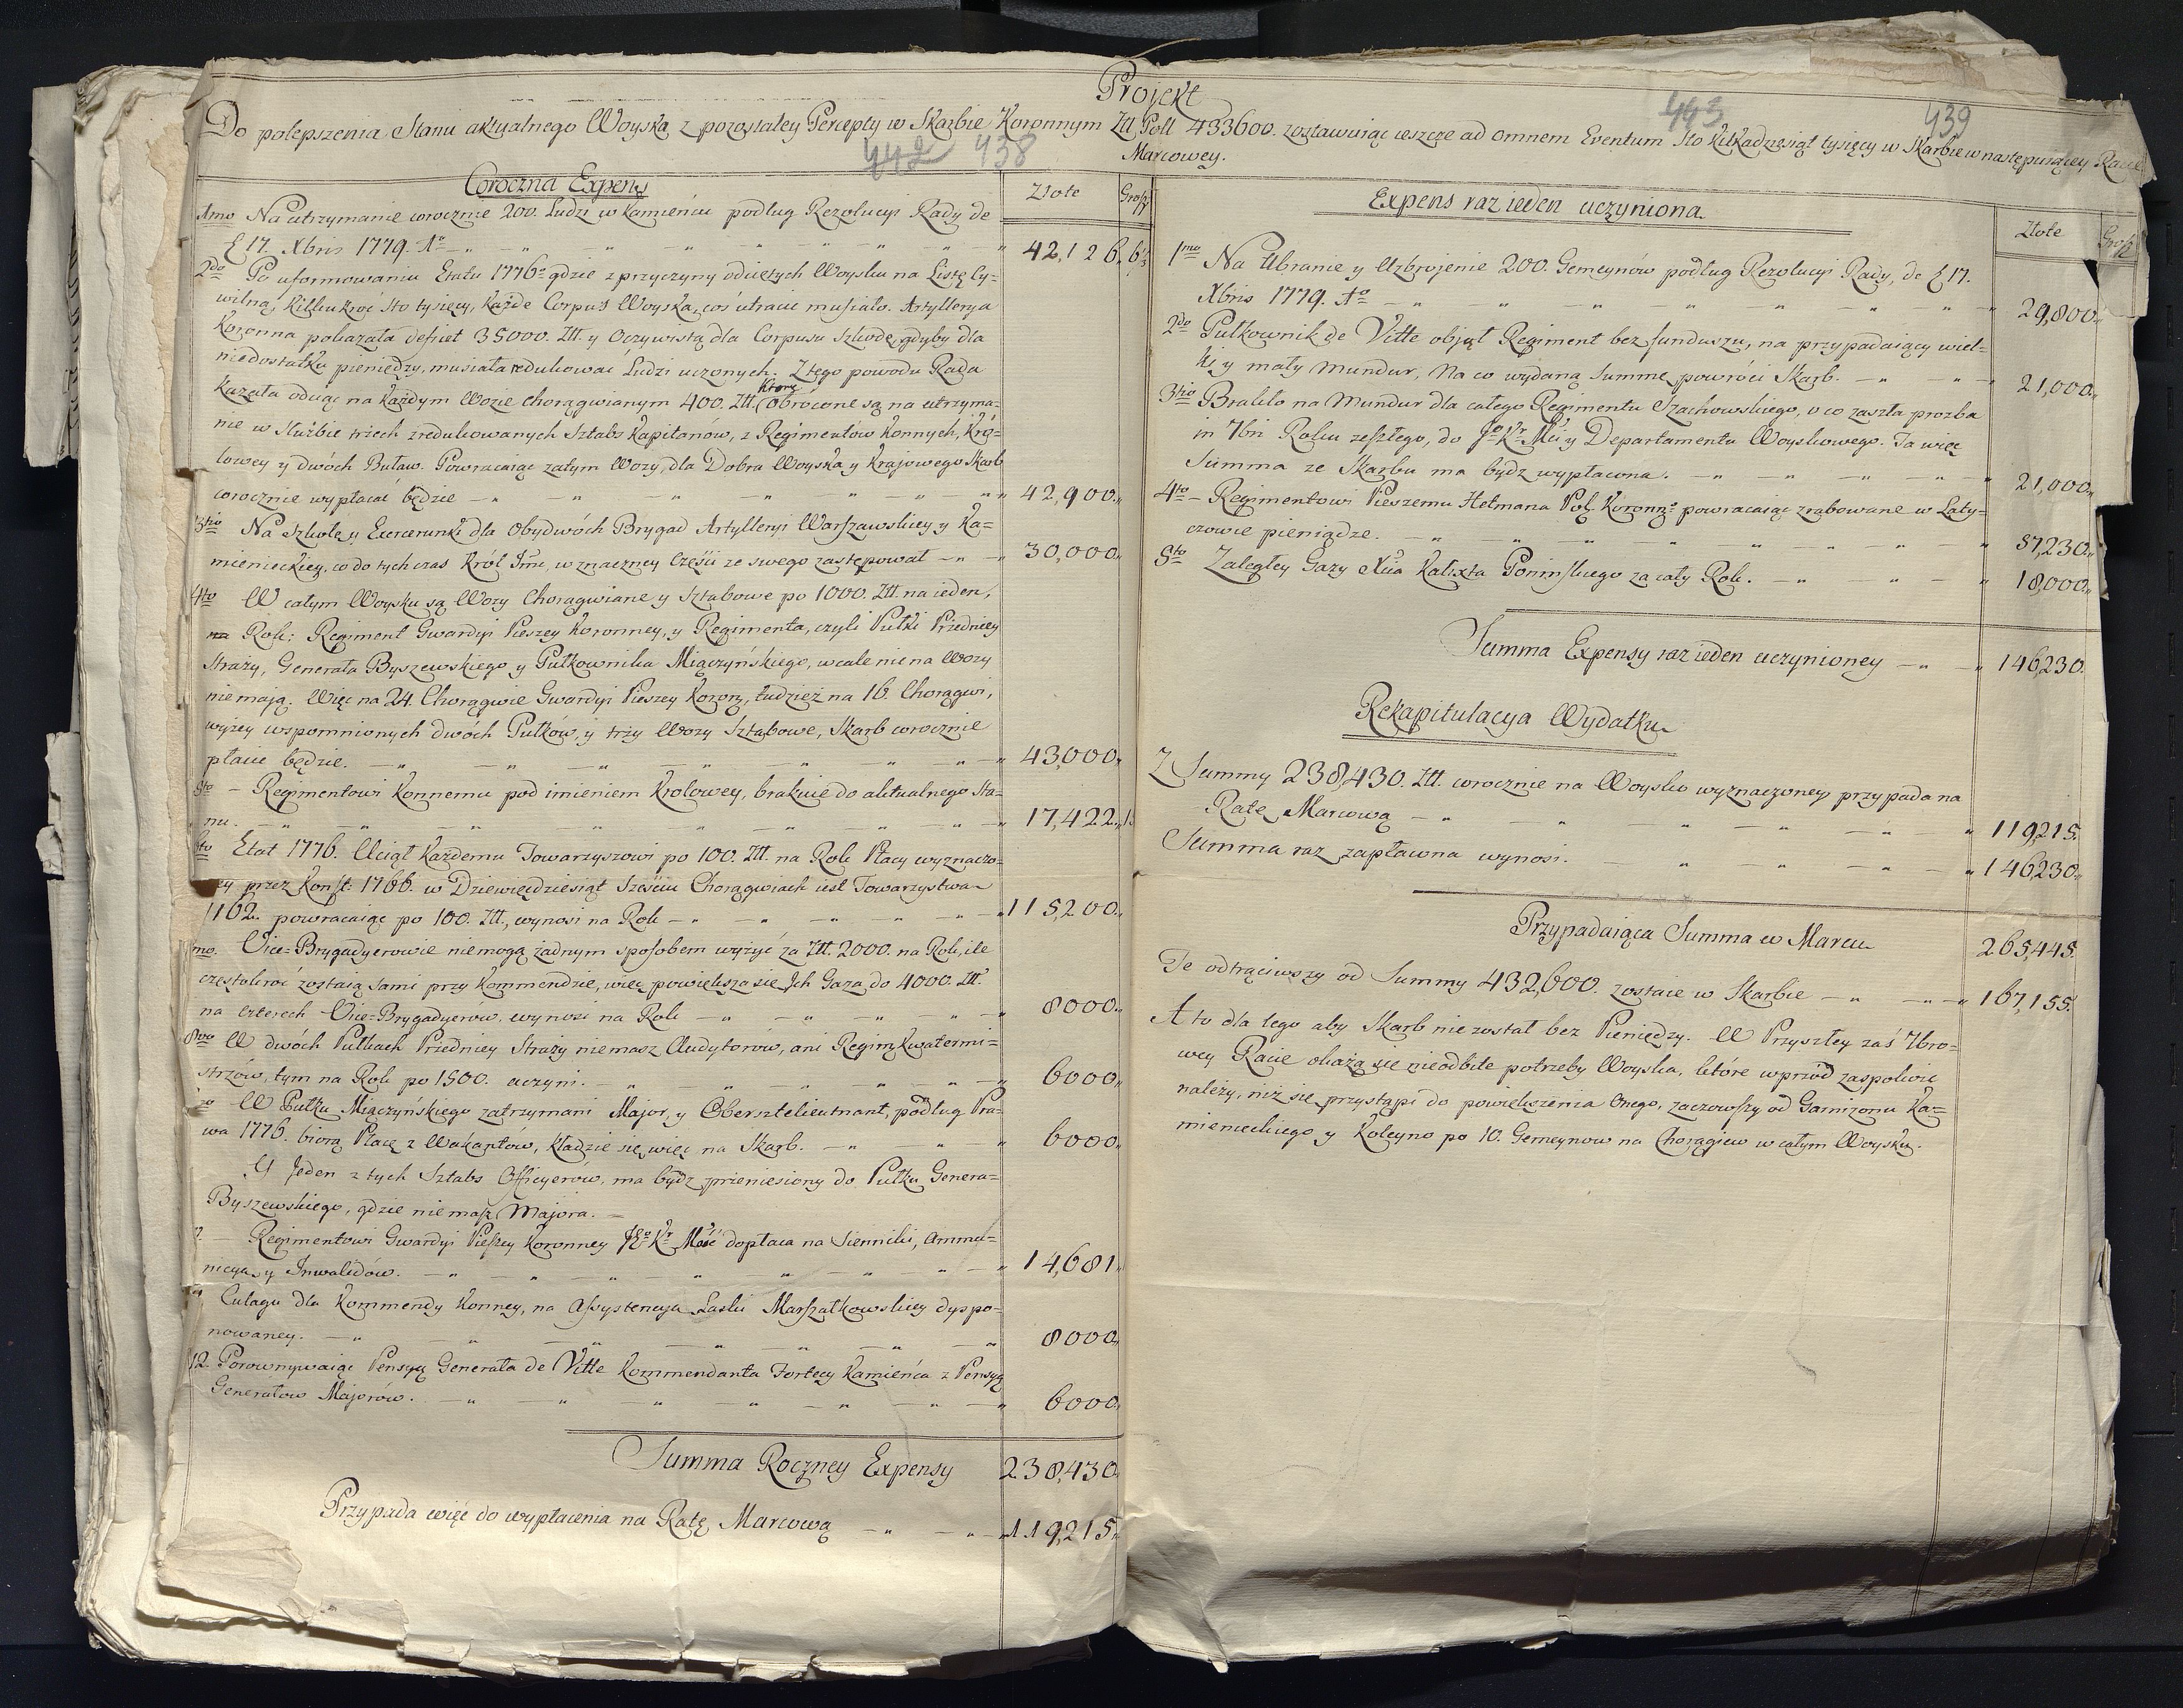 Projekt
Do polepszenia Stanu aktualnego Woyska, z pozostałey Percepty w Skarbie Koronnym Złł. Poll 433600. zostawuiąc ieszcze ad omnem Eventum sto kilkadziesiąt tysięcy w Skarbie w następuiącey Racie
Marcowey.
442 438
443 439
Coroczna Expens
Złote Grosz
1mo Na utrzymanie corocznie 200. Ludzi w Kamieńcu podług Rezolucyi Rady de
E 17. Xbris 1779. Ao 42,126. 6⅓
2do Po uformowaniu Etatu 1776o gdzie z przyczyny odiętych Woysku na Listę Cy=
wilną, kilkukroć sto tysięcy, każde Corpus Woyska, coś utracić musiało. Artyllerya
Koronna pokazała deficit 35000. Złł. y Oczywistą dla Corpusu szkodę, gdyby dla
niedostatku pieniędzy, musiała redukować Ludzi uczonych. Z tego powodu Rada
kazała odiąć na każdym Wozie Chorągwianym 400. Złł. (które obrócone są na utrzyma=
nie w służbie trzech zredukowanych Sztabs Kapitanów, z Regimentów Konnych, Kró=
lowey y dwóch Buław. Powracaiąc zatym Wozy, dla Dobra Woyska, y Krajowego Skarb
corocznie wypłacać będzie 42,900.
3tio Na Szkołę y Exercerunki dla Obydwóch Brygad Artylleryi Warszawskiey y Ka=
mienieckiey, co do tych czas Król Jmć, w znaczney Części ze swego zastępował 30,000.
4to W całym Woysku są Wozy Chorągwiane y Sztabowe po 1000. Złł. na ieden,
na Rok: Regiment Gwardyi Pieszey Koronney, y Regimenta, czyli Pułki Przedniey
Straży, Generała Byszewskiego y Pułkownika Miączyńskiego, wcale nie na Wozy
nie mają. Więc na 24. Chorągwie Gwardyi Pieszey Koron, tudzież na 16. Chorągwi,
wyżey wspomnionych dwóch Pułków, y trzy Wozy Sztabowe, Skarb corocznie
płacić będzie. 43,000.
5to Regimentowi Konnemu pod imieniem Krolowey, brakuie do aktualnego Sta=
nu. 17,422.
6to Etat 1776. Uciął każdemu Towarzyszowi po 100. Złł. na Rok Płacy wyznaczo=
ney przez Konst: 1766. w Dziewięćdziesiąt Sześciu Chorągwiach iest Towarzystwa
1162. powracaiąc po 100. Złł., wynosi na Rok 115,200.
mo. Vice=Brygadyerowie niemogą żadnym sposobem wyżyć za Złł. 2000. na Rok, ile
częstokroć zostaią sami przy Kommendzie, więc powiększa się Ich Gaza do 4000. Złł.
na czterech Vice=Brygadyerów, wynosi na Rok 8000.
8vo W dwóch Pułkach Przedniey Straży niemasz Audytorów, ani Regim. Kwatermi=
strzów, tym na Rok po 1500. uczyni. 6000.
W Pułku Miączyńskiego zatrzymani Major, y Obersztelieutnant, podług Pra=
wa 1776. biorą Płacę z Wakantów, kładzie się więc na Skarb. 6000.
Y Jeden z tych Sztabs Officyerów, ma bydź przeniesiony do Pułku Genera=
Byszewskiego, gdzie niemasz Majora.
Regimentowi Gwardyi Pieszey Koronney JKo Kr Mść dopłaca na Sienniki, Ammu=
nicya, y Inwalidow. 14,681.
Culagu dla Kommendy Konney, na Assystencyą Laski Marszałkowskiey dyspo=
nowaney. 8000.
12. Porownywaiąc Pensyą Generała de Vitte Kommendanta Fortecy Kamieńca z Pensyą
Generałow Majorów. 6000.
Summa Roczney Expensy 238,430.
Przypada więc do wypłacenia na Ratę Marcową 119,215.
Expens raz ieden uczyniona.
Złote Grosz
1mo Na Ubranie y Uzbrojenie 200. Gemeynów podług Rezolucyi Rady, de E 17.
Xbris 1779. Ao 29,800.
2do Pułkownik de Vitte objął Regiment bez funduszu, na przypadaiący wiel=
ki y mały mundur, Na co wydaną Summę, powróci Skarb. 21,000.
3tio Brakło na Mundur dla całego Regimentu Szachowskiego, o co zaszła prozba
in 7bri Roku zeszłego, do JKo Kr Mci y Departamentu Woyskowego. Ta więc
Summa ze Skarbu ma bydź wypłacona. 21,000.
4to Regimentowi Pieszemu Hetmana Pol. Koronno powracaiąc zrabowane w Laty=
czowie pieniądze. 57,230.
5to Zaległey Gazy Xcia Kalixta Ponińskiego za cały Rok. 18,000.
Summa Expensy raz ieden uczynioney 146,230.
Rekapitulacya Wydatku
Z Summy 238,430. Złł. corocznie na Woysko wyznaczoney, przypada na
Ratę Marcową 119,215.
Summa raz zapłacona wynosi. 146,230.
Przypadaiąca Summa w Marcu 265,445.
Te odtrąciwszy od Summy 432,600. zostaie w Skarbie 167,155.
A to dla tego aby Skarb nie został bez Pieniędzy. W Przyszłey zaś 7bro=
wey Racie okażą się nieodbite potrzeby Woyska, które wprzód zaspokoić
należy, niż się przystąpi do powiększenia Onego, zacząwszy od Garnizonu Ka=
mienieckiego y Koleyno po 10. Gemeynow na Chorągiew w całym Woysku.